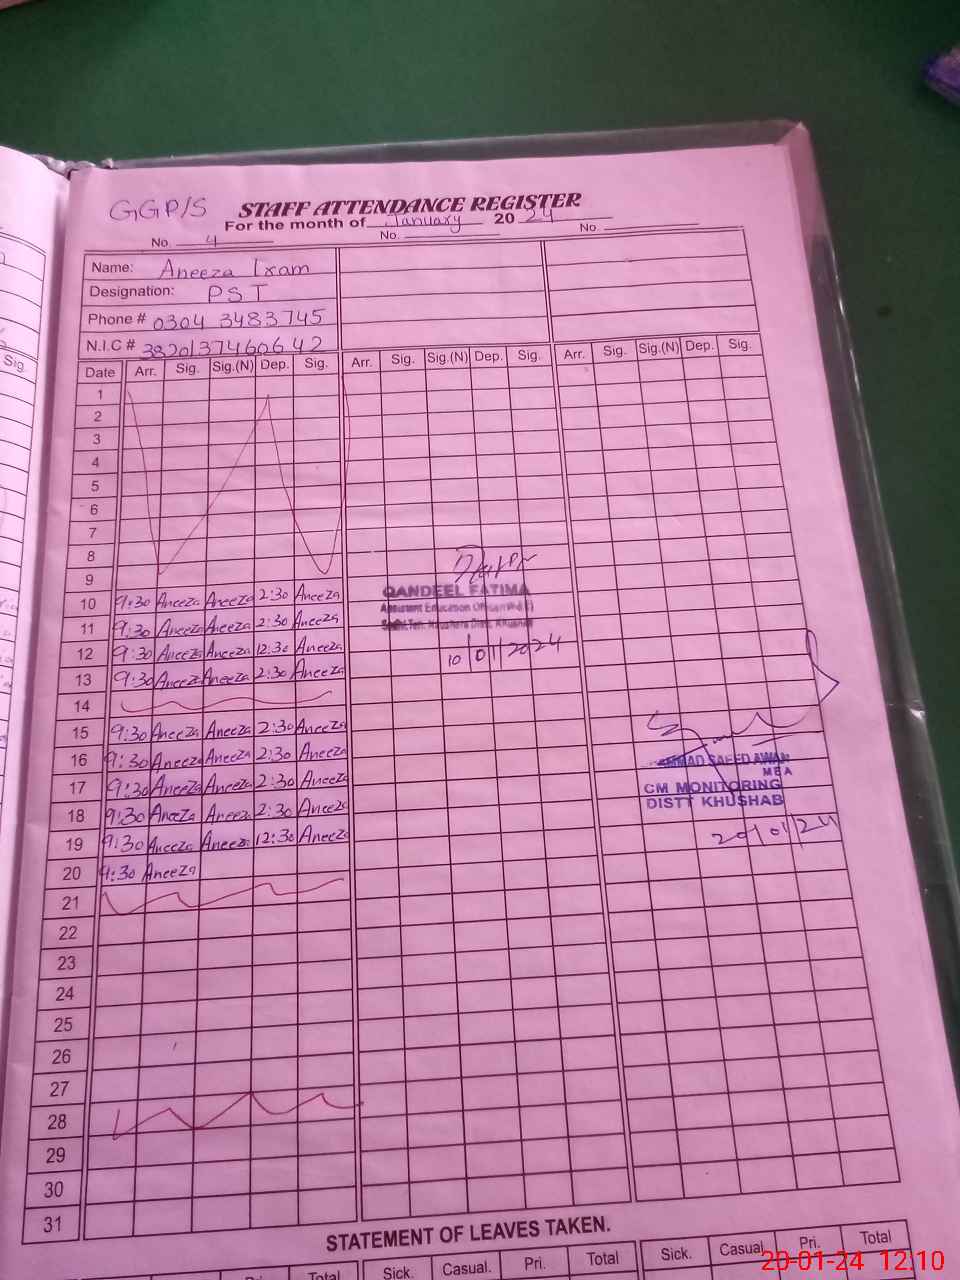 GGP/S STAFF ATTENDANCE REGISTER
For the month of January 20 24
No. 4 No. No.
Name: Aneeza Ixam
Designation: PST
Phone # 0304 3483745
N.I.C # 3820137460642
Date Arr. Sig. Sig.(N) Dep. Sig. Arr. Sig. Sig.(N) Dep. Sig. Arr. Sig. Sig.(N) Dep. Sig.
1
2
3
4
5
6
7
8
9
10 9:30 Aneeza Aneeza 2:30 Aneeza
11 9:30 Aneeza Aneeza 2:30 Aneeza
12 9:30 Aneeza Aneeza 12:30 Aneeza
13 9:30 Aneeza Aneeza 2:30 Aneeza
14
15 9:30 Aneeza Aneeza 2:30 Aneeza
16 9:30 Aneeza Aneeza 2:30 Aneeza
17 9:30 Aneeza Aneeza 2:30 Aneeza
18 9:30 Aneeza Aneeza 2:30 Aneeza
19 9:30 Aneeza Aneeza 12:30 Aneeza
20 9:30 Aneeza
21
22
23
24
25
26
27
28
29
30
31
QANDEEL FATIMA
Assistant Education Officer
10/01/2024
SAEED AWAN
MEA
CM MONITORING
DISTT KHUSHAB
20/01/24
STATEMENT OF LEAVES TAKEN.
Pri. Total Sick. Casual. Pri. Total Sick. Casual Pri. Total
Sig.
20-01-24 12:10